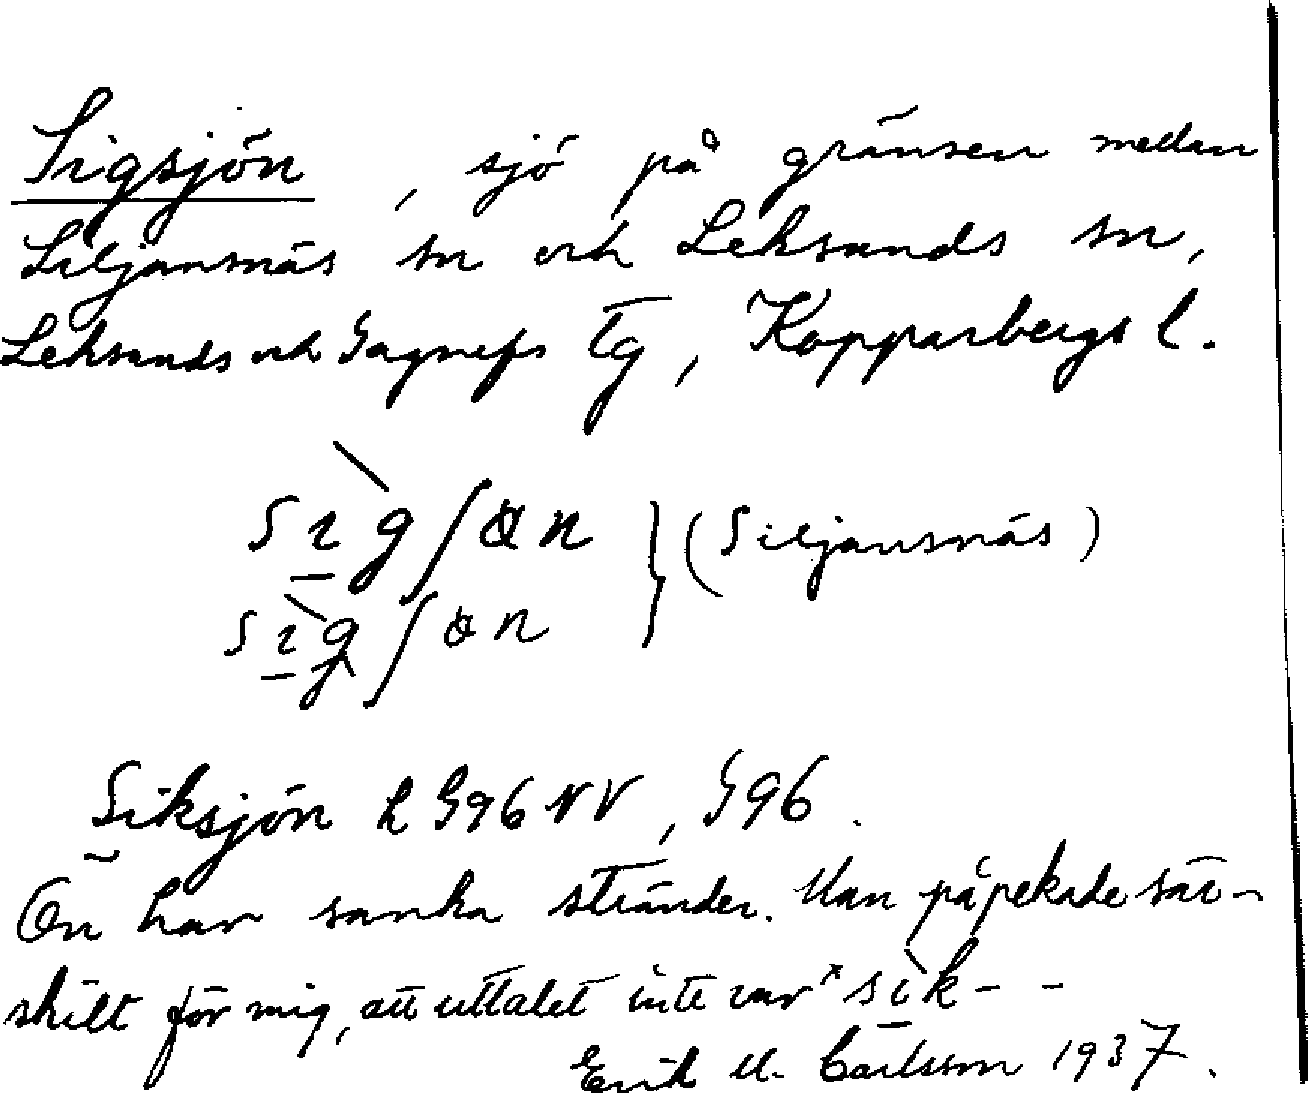 Sigsjön, sjö på gränsen medan
Siljansnäs sn och Leksands sn,
Leksands och Gagnefs tg, Kopparbergs l.
sɩ̱̀gʃɵn } (Siljansnäs)
sɩ̱̀gʃɵn
Siksjön k G96 NV, G96.
Ön har sanka stränder. Man påpekade sär-
skilt för mig, att uttalet inte var *sì̱k- -
Erik M. Carlsson 1937.